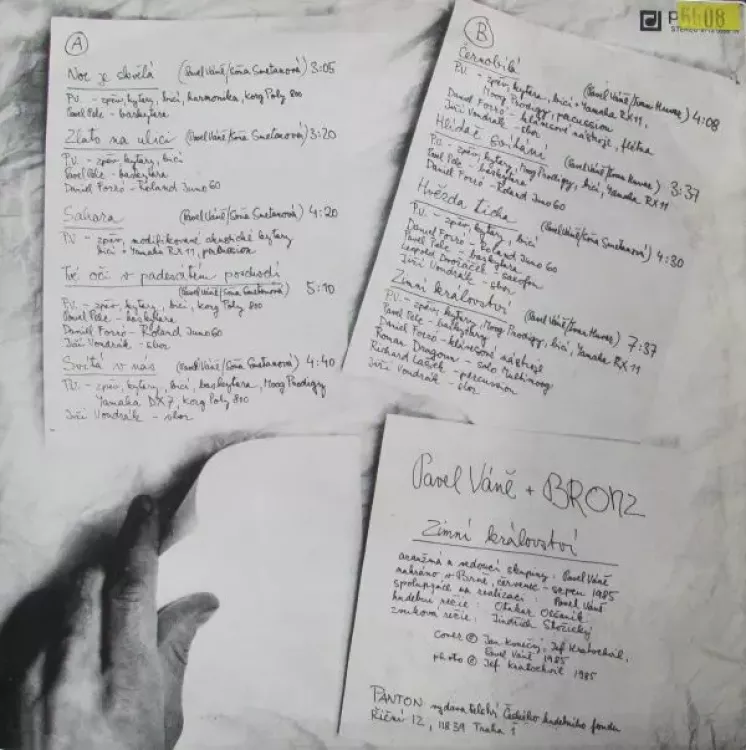 A
Noc je skvělá (Pavel Váně/Soňa Smetanová) 3:05
P.V. - zpěv, kytary, bicí, harmonika, Korg Poly 800
Pavel Pelc - baskytara
Zlato na ulici (Pavel Váně/Soňa Smetanová) 3:20
P.V. - zpěv, kytary, bicí
Pavel Pelc - baskytara
Daniel Forró - Roland Juno 60
Sahara (Pavel Váně/Soňa Smetanová) 4:20
P.V. - zpěv, modifikované akustické kytary
bicí + Yamaha RX 11, percussion
Tvé oči v padesátém poschodí
(Pavel Váně/Soňa Smetanová) 5:10
P.V. - zpěv, kytary, bicí, Korg Poly 800
Pavel Pelc - baskytara
Daniel Forró - Roland Juno 60
Jiří Vondrák - sbor
Svítá v nás (Pavel Váně/Soňa Smetanová) 4:40
P.V. - zpěv, kytary, bicí, baskytara, Moog Prodigy
Yamaha DX7, Korg Poly 800
Jiří Vondrák - sbor
B
Černobílá (Pavel Váně/Ivan Huvar) 4:08
P.V. - zpěv, kytara, bicí + Yamaha RX 11,
Moog Prodigy, percussion
Daniel Forró - klávesové nástroje, flétna
Jiří Vondrák - sbor
Hlídač svítání (Pavel Váně/Ivan Huvar) 3:37
P.V. - zpěv, kytary, Moog Prodigy, bicí, Yamaha RX 11
Pavel Pelc - baskytara
Daniel Forró - Roland Juno 60
Hvězda ticha (Pavel Váně/Soňa Smetanová) 4:30
P.V. - zpěv, kytary, bicí
Daniel Forró - Roland Juno 60
Pavel Pelc - baskytara
Leopold Dvořáček - saxofon
Jiří Vondrák - sbor
Zimní království (Pavel Váně/Ivan Huvar) 7:37
P.V. - zpěv, kytary, Moog Prodigy, bicí, Yamaha RX 11
Pavel Pelc - baskytary
Daniel Forró - klávesové nástroje
Roman Dragoun - solo Multimoog
Richard - percussion
Jiří Vondrák - sbor
P
6608
STEREO
Pavel Váně + BRONZ
Zimní království
aranžmá a vedoucí skupiny: Pavel Váně
nahráno v Brně, červenec - srpen 1985
spolupráce na realizaci: Pavel Váně
hudební režie: Otakar Olšaník
zvuková režie: Jindřich
cover © Jan Konečný, Jef Kratochvil,
Pavel Váně 1985
photo © Jef Kratochvil 1985
PANTON vydavatelství Českého hudebního fondu
Říční 12, 118 39 Praha 1